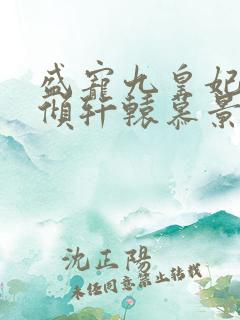 盛寵九皇妃
傾軒轅慕景
沈正陽
未经同意禁止转载